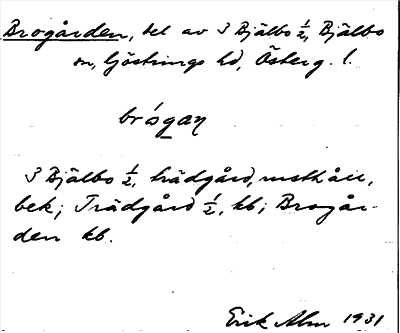 Brogården, del av 3 Bjälbo ½, Bjälbo
sn, Göstrings hd, Österg. l.
brógan
3 Bjälbo ½, trädgård, rusthåll,
bek; Trädgård ½, kb; Brogår-
den kb.
Erik Alm 1931